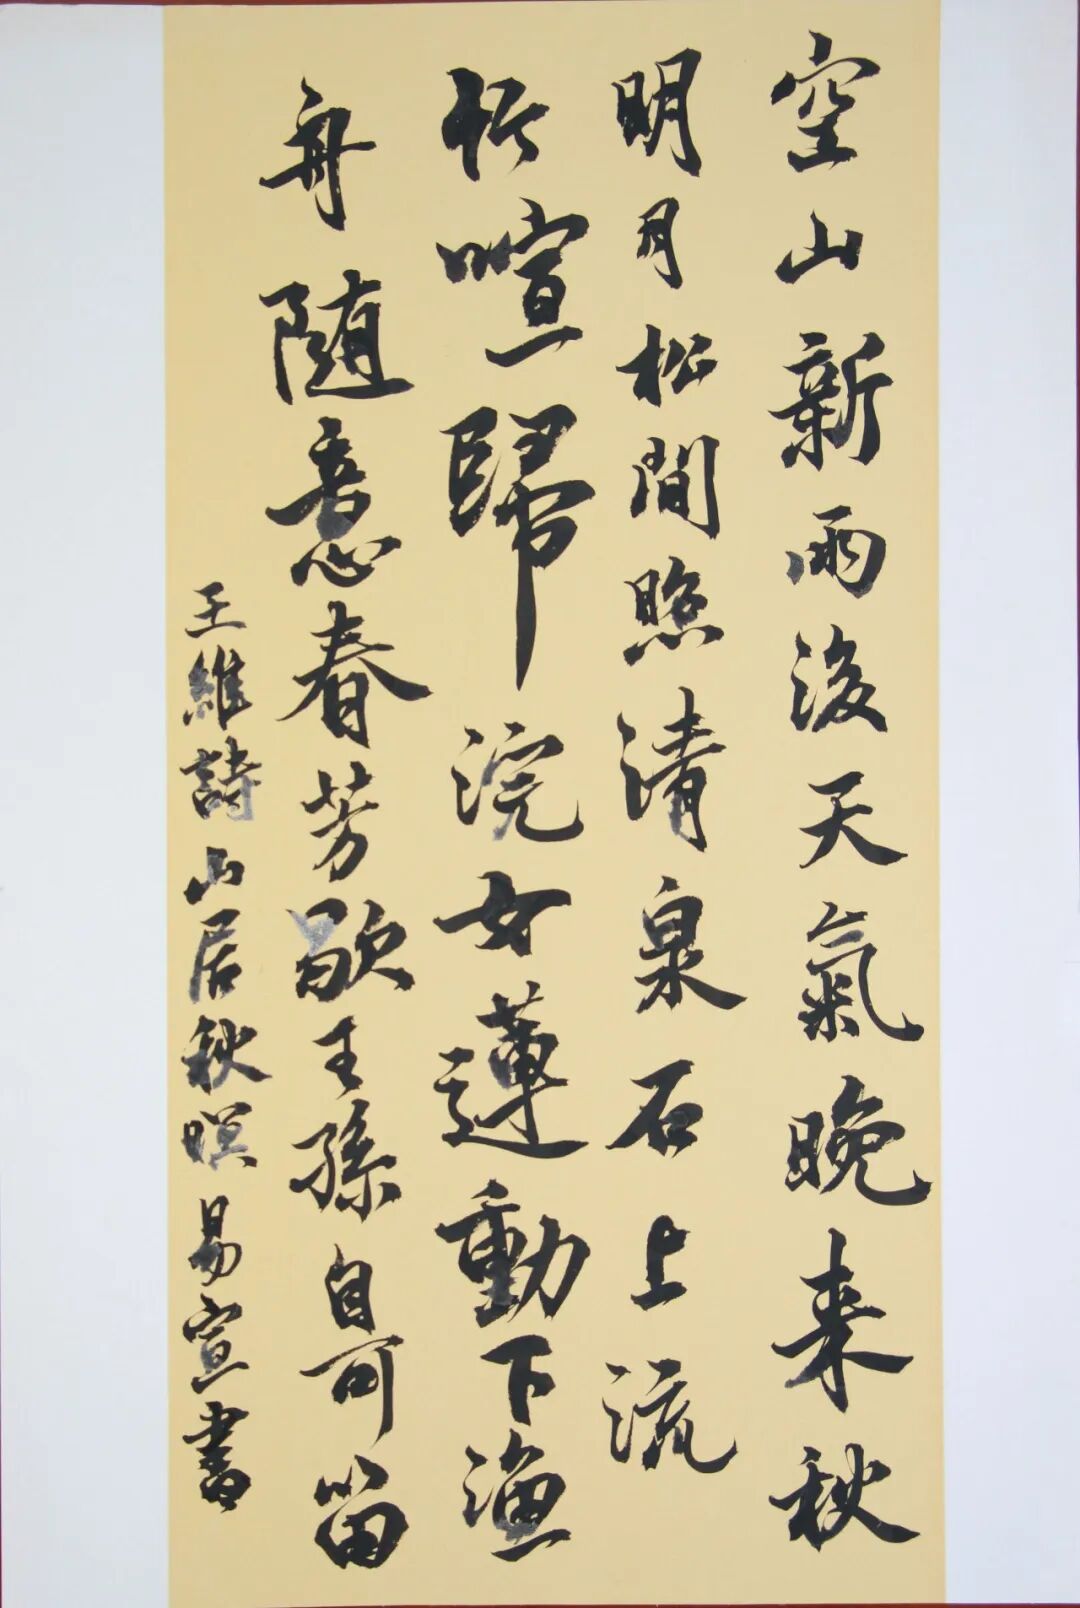 空山新雨後天氣晚来秋
明月松間照清泉石上流
竹喧歸浣女蓮動下漁
舟随意春芳歇王孫自可留
王維詩山居秋暝易宣書